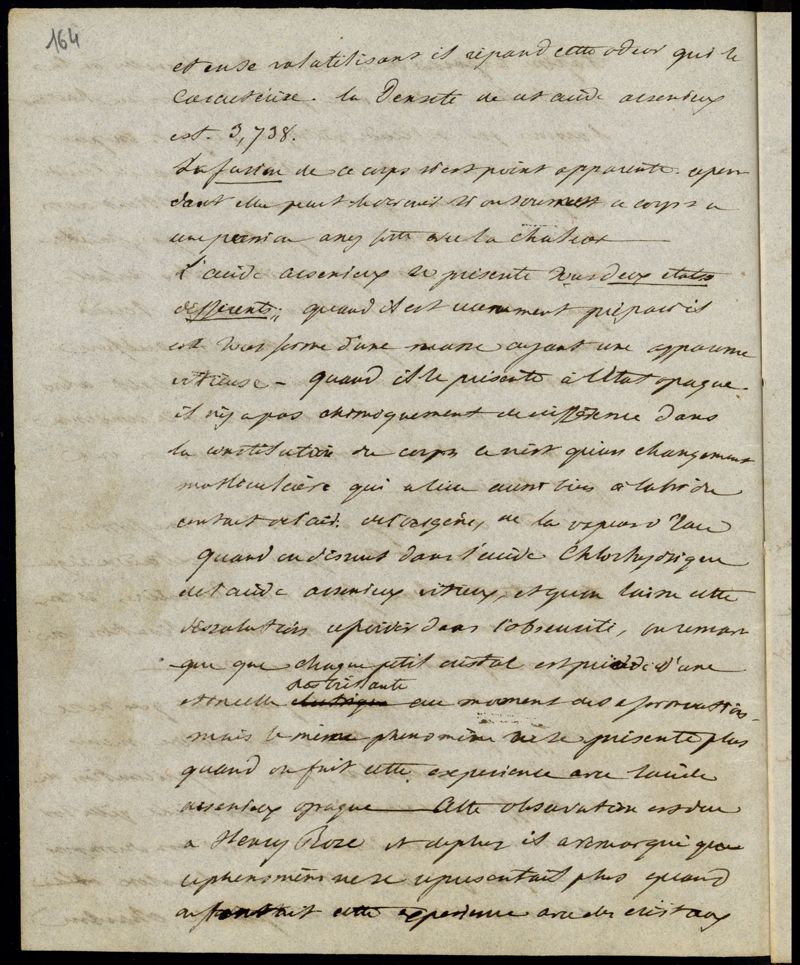 164
et en se volatilisant il répand cette odeur qui le
caractérise. la Densité de cet acide arsenieux
est 3,738.
La fusion de ce corps n'est point apparente. cepen
dant elle peut avoir lieu si on soumet ce corps a
une pression assez forte avec la chaleur
L'acide arsenieux se présente sous deux etats
differents; quand il est recemment préparé il
est sous forme d'une masse ayant une apparence
vitreuse - quand il se présente à l'état opaque
il n'y a pas chimiquement de différence dans
la constitution du corps ce n'est qu'un changement
moleculaire qui a lieu aussi bien à l'abri du
contact de l'air, de l'oxigène, de la vapeur d'eau
quand on dissout dans l'acide Chlorhydrique
de l'acide arsenieux vitreux, et qu'on laisse cette
dissolution reposer dans l'obscurité, on remar
que que chaque petit cristal est précédé d'une
etincelle electrique tres brillante au moment de sa formation
mais le même phenomène ne se présente plus
quand on fait cette experience avec l'acide
arsenieux opaque Cette observation est due
a Henry Roze et de plus il a remarqué que
ce phenomène ne se representait plus quand
on fait cette experience avec des cristaux